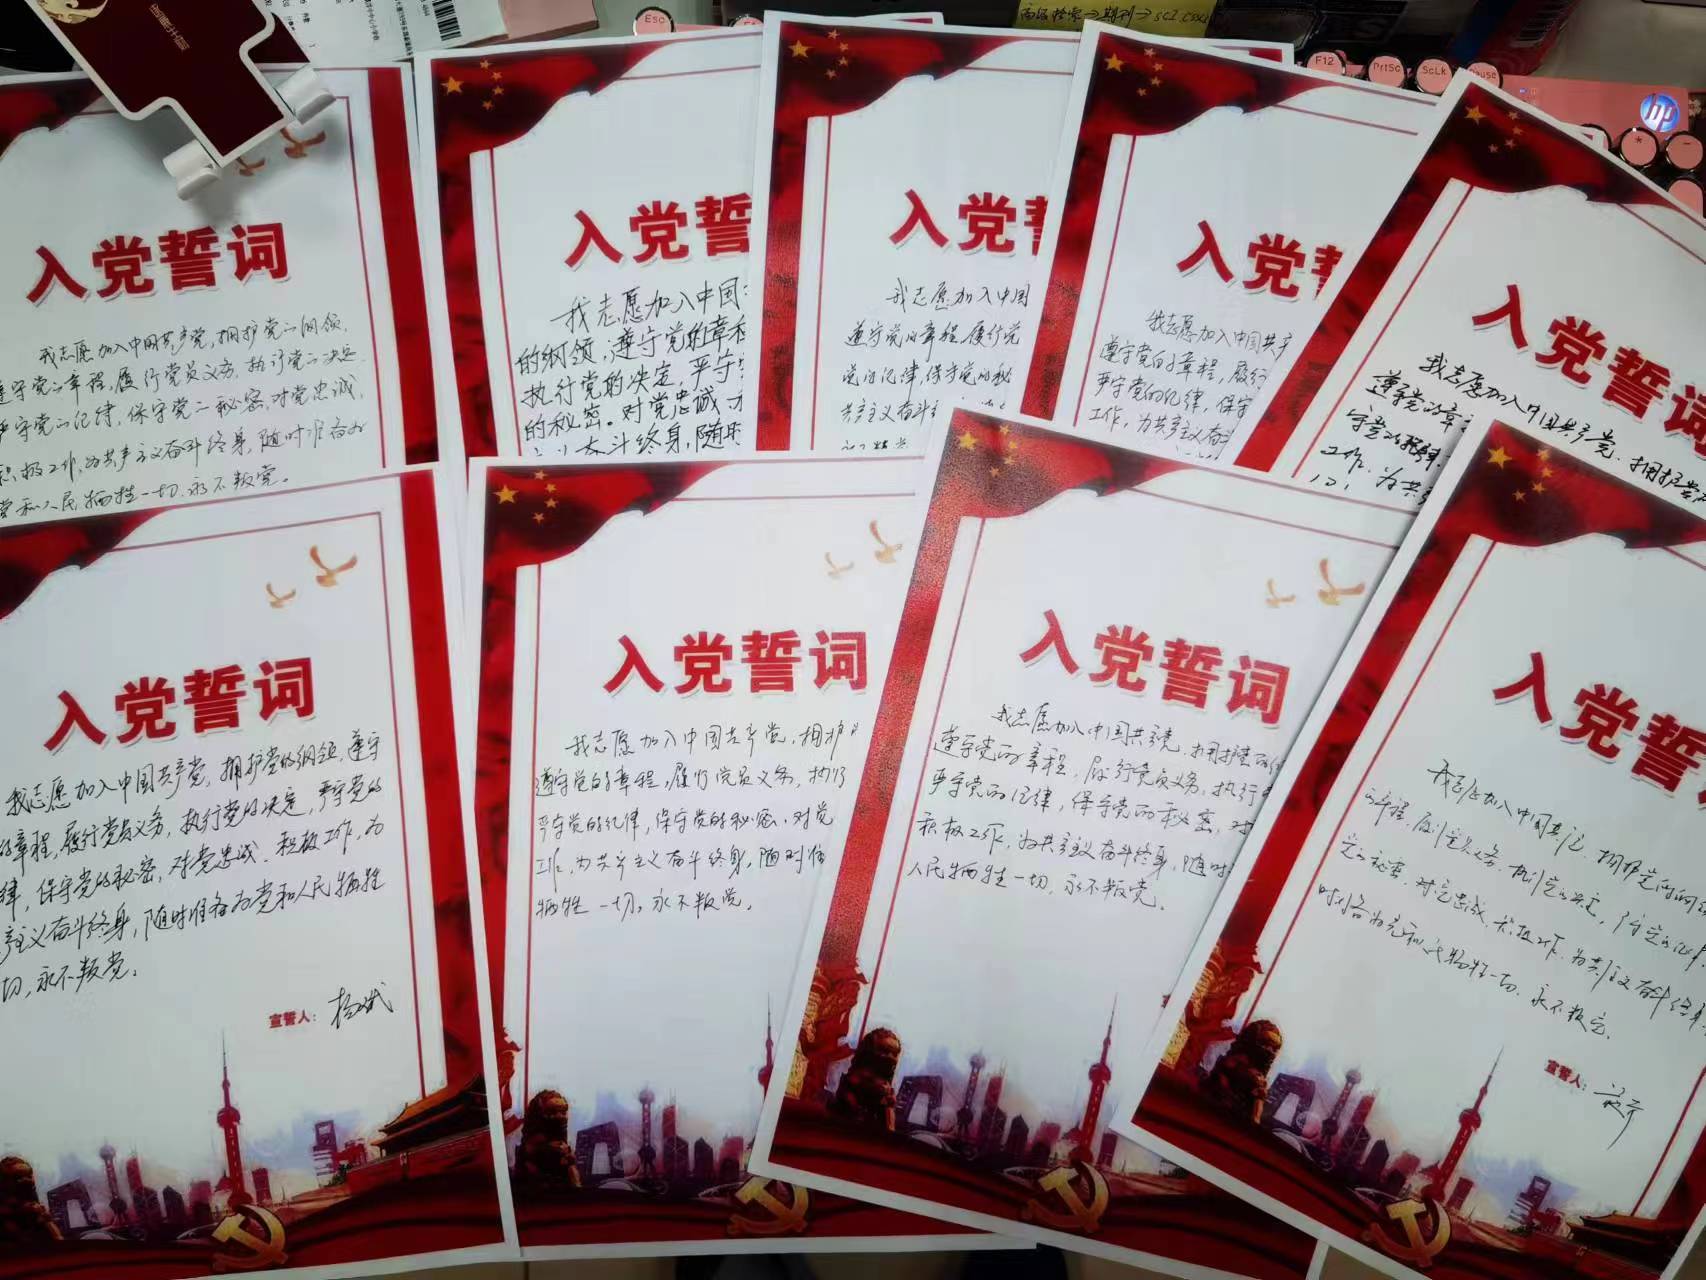 Esc
高级检索→期刊→SCI CSSCI
F12
PrtSc
ScLk
Pause
hp
*
-
入党誓词
我志愿加入中国共产党,拥护党的纲领,
遵守党的章程,履行党员义务,执行党的决定,
严守党的纪律,保守党的秘密,对党忠诚,
积极工作,为共产主义奋斗终身,随时准备为
党和人民牺牲一切,永不叛党。
入党誓
我志愿加入中国
的纲领,遵守党的章程
执行党的决定,严守
的秘密。对党忠诚
奋斗终身,随时
入党
我志愿加入中国
遵守党的章程,履行党
党的纪律,保守党的秘
共产主义奋斗
入党
我志愿加入中国共产
遵守党的章程,履行
严守党的纪律,保守
工作,为共产主义奋斗
入党誓词
我志愿加入中国共产党,拥护党
遵守党的章
守党的纪律
工作,为共
入党誓词
我志愿加入中国共产党,拥护党的纲领,遵守
的章程,履行党员义务,执行党的决定,严守党的
律,保守党的秘密,对党忠诚,积极工作,为
产主义奋斗终身,随时准备为党和人民牺牲
切,永不叛党。
宣誓人:
入党誓词
我志愿加入中国共产党,拥护
遵守党的章程,履行党员义务,执行
严守党的纪律,保守党的秘密,对党
工作,为共产主义奋斗终身,随时准
牺牲一切,永不叛党。
入党誓词
我志愿加入中国共产党,拥护党的
遵守党的章程,履行党员义务,执行
严守党的纪律,保守党的秘密,对
积极工作,为共产主义奋斗终身,随时
人民牺牲一切,永不叛党。
入党誓
我志愿加入中国共产党,拥护党的纲
的章程,履行党员义务,执行党的决定,严守党的纪律
党的秘密,对党忠诚,积极工作,为共产主义奋斗终身
时准备为党和人民牺牲一切,永不叛党。
宣誓人: